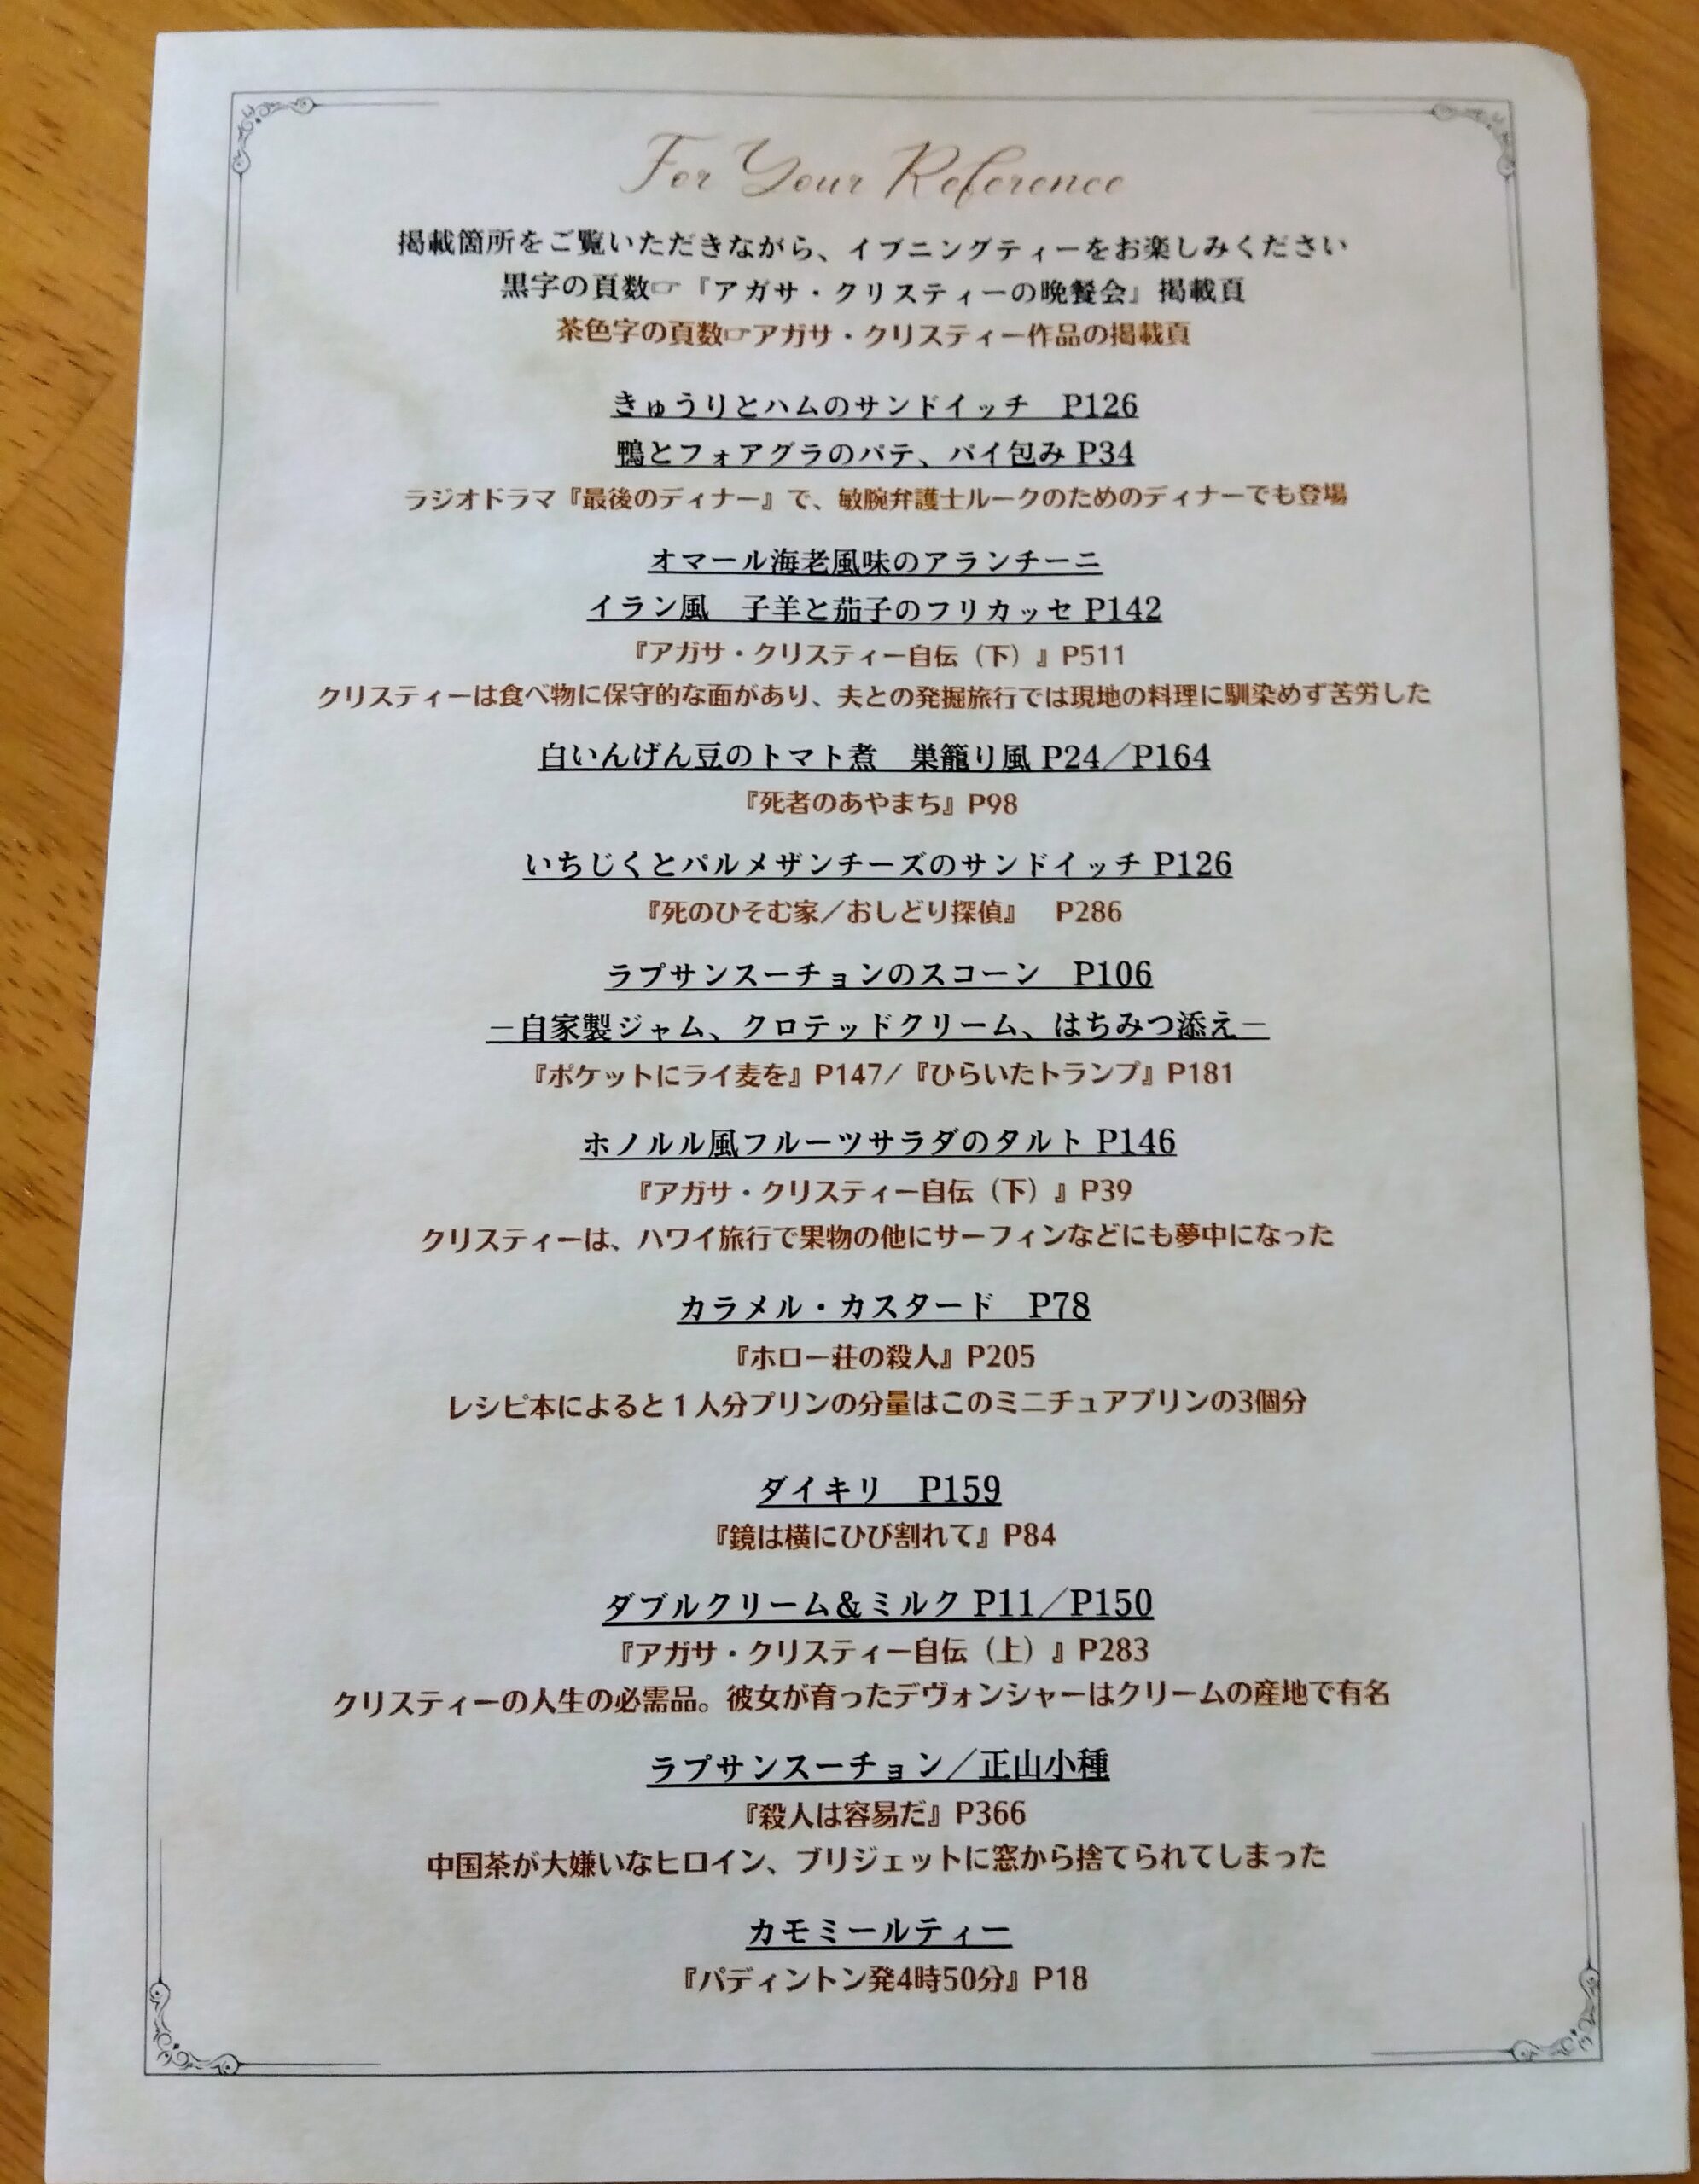 For Your Reference
掲載箇所をご覧いただきながら、イブニングティーをお楽しみください
黒字の頁数☞『アガサ・クリスティーの晩餐会』掲載頁
茶色字の頁数☞アガサ・クリスティー作品の掲載頁
きゅうりとハムのサンドイッチ　P126
鴨とフォアグラのパテ、パイ包み P34
ラジオドラマ『最後のディナー』で、敏腕弁護士ルークのためのディナーでも登場
オマール海老風味のアランチーニ
イラン風　子羊と茄子のフリカッセ P142
『アガサ・クリスティー自伝（下）』P511
クリスティーは食べ物に保守的な面があり、夫との発掘旅行では現地の料理に馴染めず苦労した
白いんげん豆のトマト煮　巣籠り風 P24／P164
『死者のあやまち』P98
いちじくとパルメザンチーズのサンドイッチ P126
『死のひそむ家／おしどり探偵』　P286
ラプサンスーチョンのスコーン　P106
－自家製ジャム、クロテッドクリーム、はちみつ添え－
『ポケットにライ麦を』P147/『ひらいたトランプ』P181
ホノルル風フルーツサラダのタルト P146
『アガサ・クリスティー自伝（下）』P39
クリスティーは、ハワイ旅行で果物の他にサーフィンなどにも夢中になった
カラメル・カスタード　P78
『ホロー荘の殺人』P205
レシピ本によると１人分プリンの分量はこのミニチュアプリンの3個分
ダイキリ　P159
『鏡は横にひび割れて』P84
ダブルクリーム＆ミルク P11／P150
『アガサ・クリスティー自伝（上）』P283
クリスティーの人生の必需品。彼女が育ったデヴォンシャーはクリームの産地で有名
ラプサンスーチョン／正山小種
『殺人は容易だ』P366
中国茶が大嫌いなヒロイン、ブリジェットに窓から捨てられてしまった
カモミールティー
『パディントン発4時50分』P18